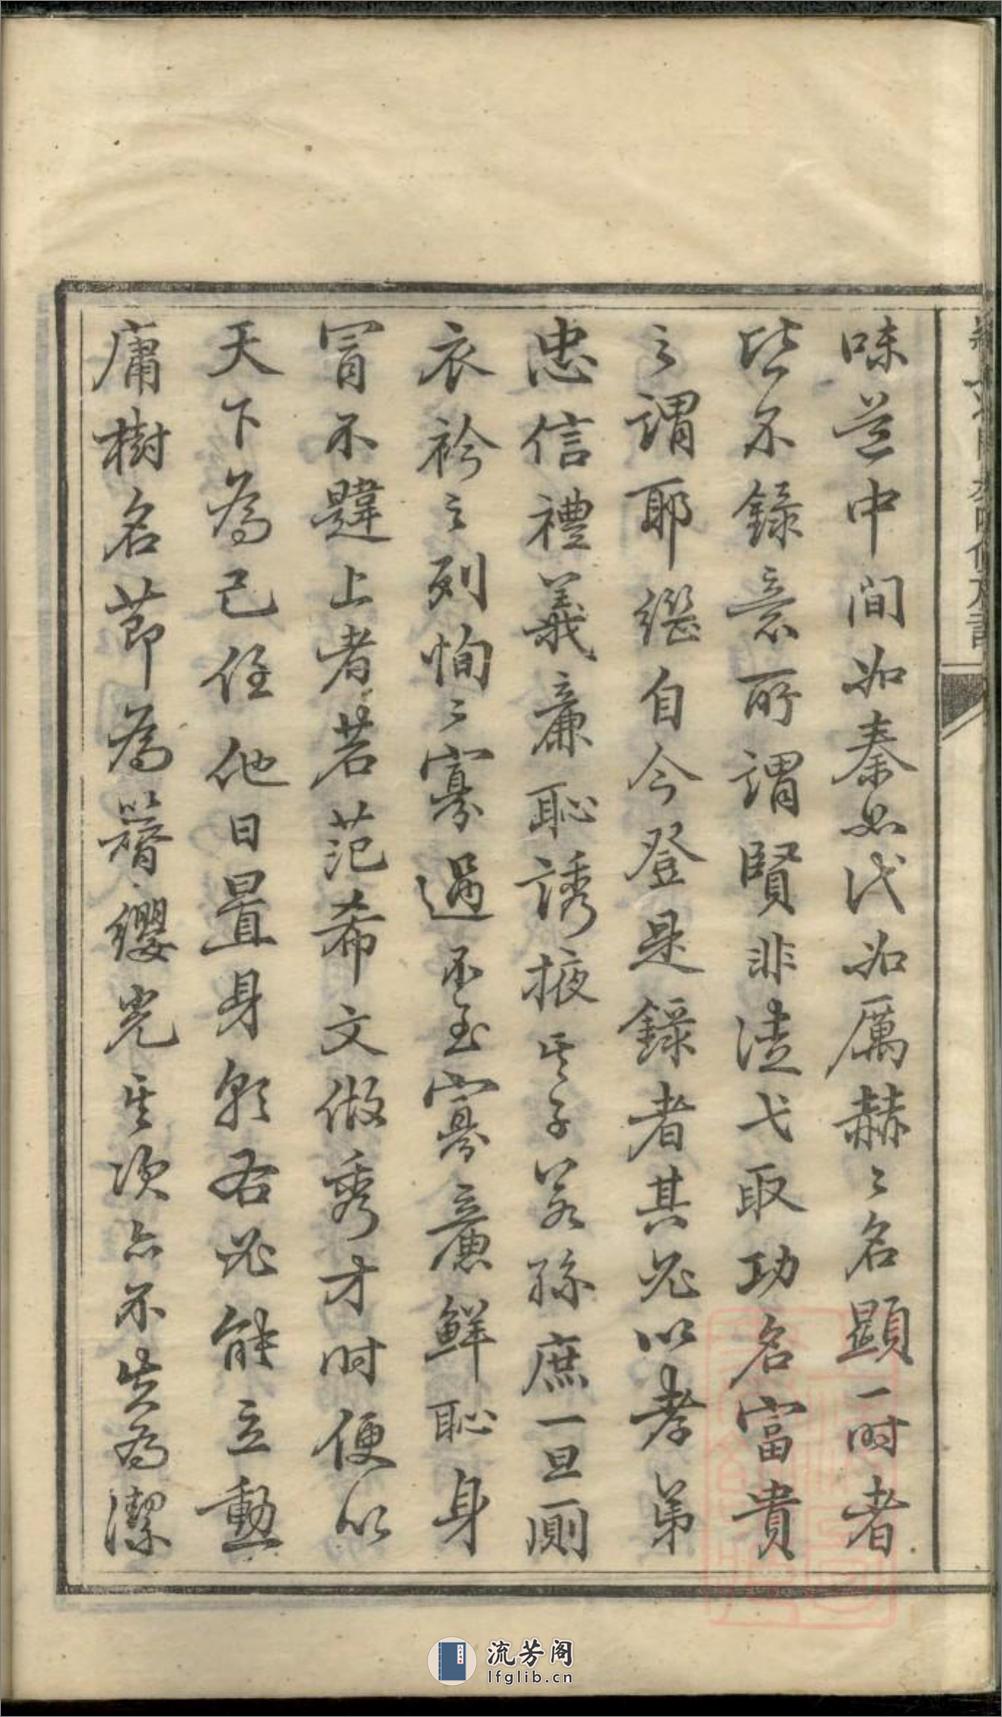 味道中间如秦如代如厲赫〻名顯一时者
皆不錄意所謂賢非湋弋取功名富貴
之謂耶继自今登是錄者其必以孝弟
忠信禮義廉恥誘掖其子若孫庶一旦厠
衣衿之列恂〻寡過不至寡廉鮮恥身
冒不韙上者若范希文做秀才时便以
天下為己任他日置身郎右必能立勳
庸樹名節為簪纓光其次亦不失為潔
流芳阁
lfglib.cn